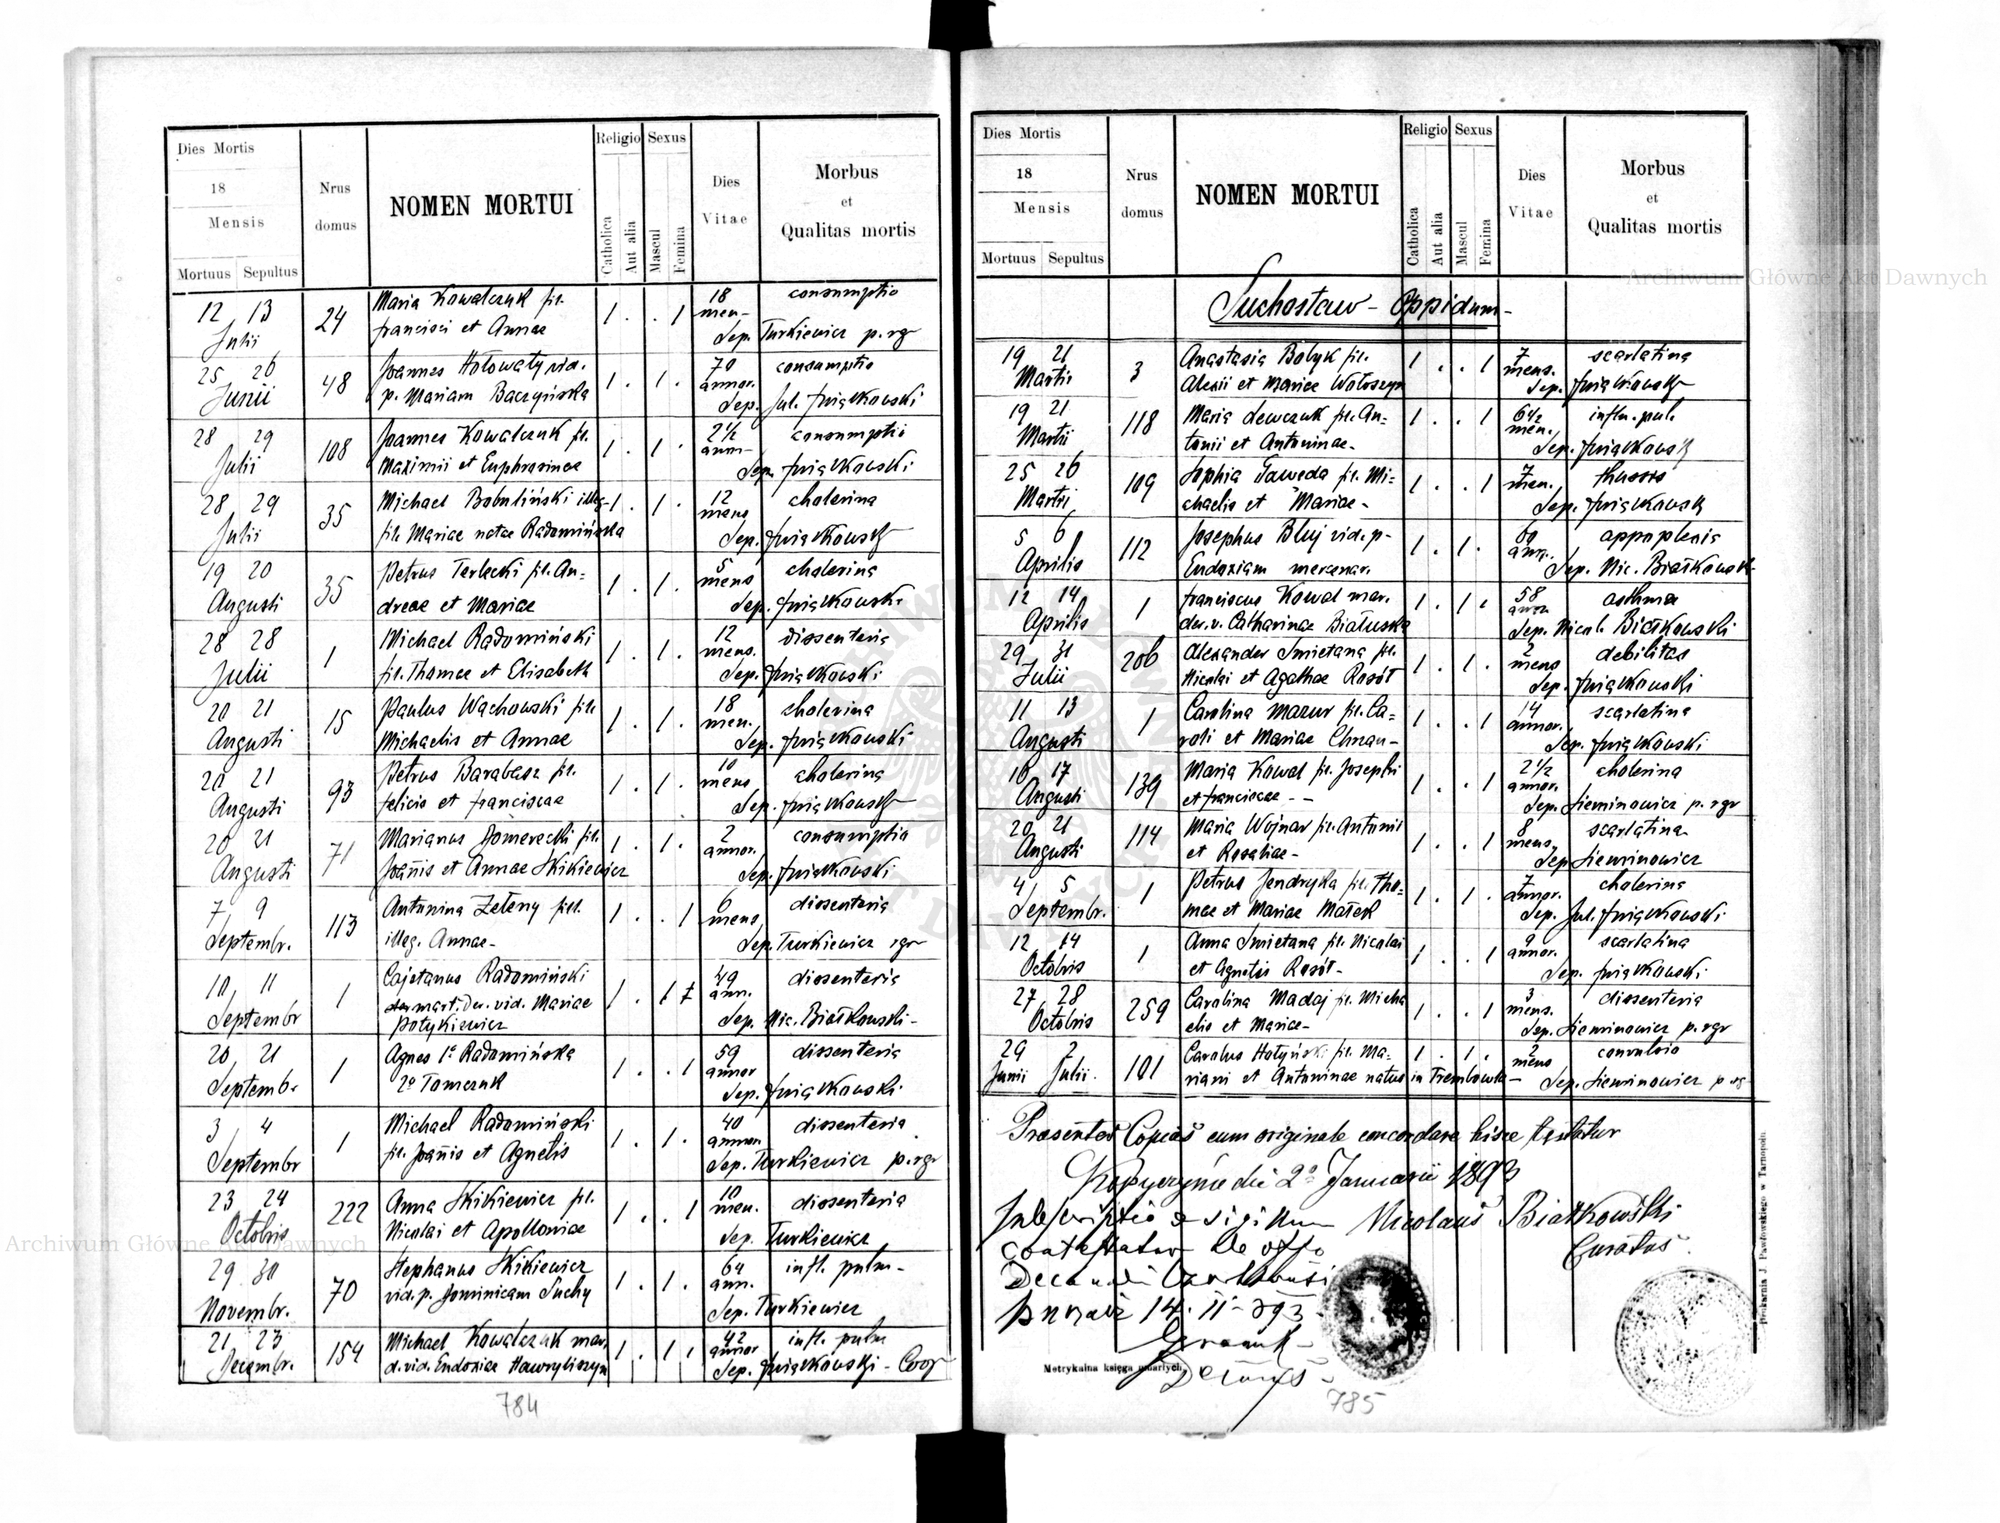 Dies Mortis
18
Mensis
Mortuus Sepultus
Nrus domus
NOMEN MORTUI
Religio
Catholica
Aut alia
Sexus
Mascul
Femina
Dies Vitae
Morbus
et
Qualitas mortis
12 13 Julii 24 Maria Kowalczuk fil. 1 . . 1 18 men- consumptio
francisci et Annae Sep. Turkiewicz p. rgr
25 26 Junii 48 Joannes Hołowaty vid. 1 . 1 . 70 annor. consumptio
p. Mariam Baczyńska Sep. Jul. Świątkowski
28 29 Julii 108 Joannes Kowalczuk fil. 1 . 1 . 2½ ann- consumptio
Maximii et Euphrosinae Sep. Świątkowski
28 29 Julii 35 Michael Bobuliński illeg- 1 . 1 . 12 mens cholerina
fil. Mariae natae Radomińska Sep. Świątkowski
19 20 Augusti 35 Petrus Terlecki fil. An- 1 . 1 . 5 mens cholerina
dreae et Mariae Sep. Świątkowski
28 28 Julii 1 Michael Radomiński 1 . 1 . 12 mens. dissenteria
fil. Thomae et Elisabeth Sep. Świątkowski
20 21 Augusti 15 Paulus Wachowski fil. 1 . 1 . 18 men. cholerina
Michaelis et Annae Sep. Świątkowski
20 21 Augusti 93 Petrus Barabasz fil. 1 . 1 . 10 mens cholerina
felicis et franciscae Sep. Świątkowski
20 21 Augusti 71 Marianus Domerecki fil. 1 . 1 . 2 annor. consumptio
Joañis et Annae Skikiewicz Sep. Świątkowski
7 9 Septembr. 113 Antonina Zeleny fil. 1 . . 1 6 mens dissenteria
illeg. Annae- Sep. Turkiewicz rgr
10 11 Septembr 1 Cajetanus Radomiński 1 . 1 49 ann. dissenteria
mart. Der. vid. Mariae
Połykiewicz Sep. Nic. Białkowski-
20 21 Septembr. 1 Agnes 1º Radomińska 1 . . 1 59 annor dissenteria
2º Tomczuk Sep. Świątkowski
3 4 Septembr 1 Michael Radomiński 1 . 1 . 40 annor. dissenteria
fil. Joañis et Agnetis Sep. Turkiewicz p. rgr
23 24 Octobris 222 Anna Skikiewicz fil. 1 . . 1 10 men. dissenteria
Nicolai et Apolloniae Sep. Turkiewicz
29 30 Novembr. 70 Stephanus Skikiewicz 1 . 1 . 64 ann. infl. pulm-
vid. p. Dominicam Suchy Sep. Turkiewicz
21 23 Decembr. 154 Michael Kowalczuk mar. 1 . 1 . 42 annor infl. pulm
d. vid. Eudoxiae Hawryliszyn Sep. Świątkowski - Coop
784
Dies Mortis
18
Mensis
Mortuus Sepultus
Nrus domus
NOMEN MORTUI
Religio
Catholica
Aut alia
Sexus
Mascul
Femina
Dies Vitae
Morbus
et
Qualitas mortis
Suchostaw - Oppidum-
19 21 Martii 3 Anastasia Bobyk fil. 1 . . 1 7 mens. scarlatina
Alexii et Mariae Wołoszyn Sep. Świątkowski
19 21 Martii 118 Maria Lewczuk fil. An- 1 . . 1 6½ men. inflm. pul.
tonii et Antoninae- Sep. Świątkowski
25 26 Martii 109 Sophia Gaweda fil. Mi- 1 . . 1 7 men. thussis
chaelis et Mariae- Sep. Świątkowski
5 6 Aprilis 112 Josephus Bluj vid. p- 1 . 1 . 60 ann. appoplexia
Eudoxiam mercenar. Sep. Nic. Białkowski
12 14 Aprilis 1 franciscus Kowal mar. 1 . 1 . 58 annor. asthma
der. v. Catharinae Białuska Sep. Nicol. Białkowski
29 31 Julii 206 Alexander Smietana fil. 1 . 1 . 2 mens debilitas
Nicolai et Agathae Rosół Sep. Świątkowski
11 13 Augusti 1 Carolina Mazur fil. Ca- 1 . . 1 14 annor. scarlatina
roli et Mariae Chrzan- Sep. Świątkowski
16 17 Augusti 139 Maria Kowal fil. Josephi 1 . . 1 2½ annor. cholerina
et franciscae - - Sep. Sieminowicz p. rgr
20 21 Augusti 114 Maria Wojnar fil. Antonii 1 . . 1 8 mens. scarlatina
et Rosaliae- Sep Sieminowicz
4 5 Septembr. 1 Petrus Jendryka fil. Tho- 1 . 1 . 7 annor. cholerina
mae et Mariae Małek Sep. Jul. Świątkowski
12 14 Octobris 1 Anna Smietana fil. Nicolai 1 . . 1 9 annor. scarlatina
et Agnetis Rosół- Sep. Świątkowski
27 28 Octobris 259 Carolina Madaj fil. Micha 1 . . 1 3 mens. dissenteria
elis et Mariae- Sep. Sieminowicz p. rgr
29 Junii 2 Julii. 101 Carolus Hołyński fil. Ma- 1 . 1 . 2 mens convulsio
riani et Antoninae natus in Trembowla- Sep. Sieminowicz p. rgr
Præsentes Copias cum originale concordare hisce testatur
Kopyczyńce die 2ª Januarii 1893
Subscriptio & sigillum Nicolaus Białkowski
contestatur de offo Curatus.
Decanali
14. II. 893
Metrykalna księga umarłych.
Drukarnia J. Pawłowskiego w Tarnopolu
785
Archiwum Główne Akt Dawnych
Archiwum Główne Akt Dawnych